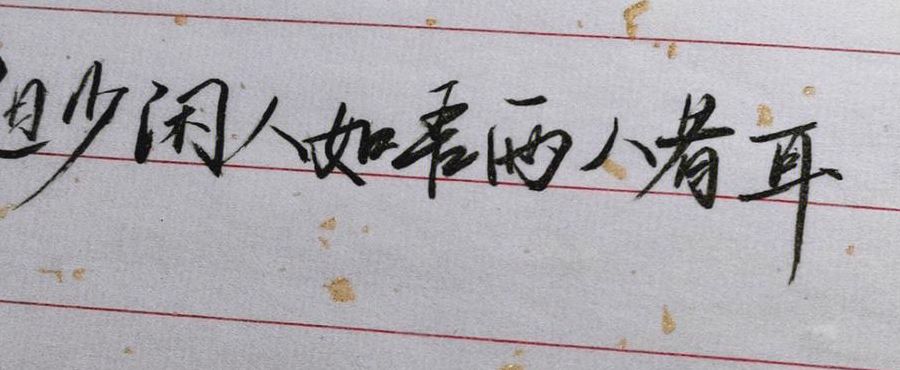 但少闲人如吾两人者耳